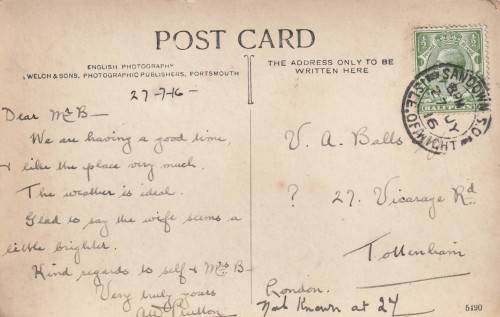 POST CARD
ENGLISH PHOTOGRAPHY
WELCH & SONS, PHOTOGRAPHIC PUBLISHERS, PORTSMOUTH
THE ADDRESS ONLY TO BE
WRITTEN HERE
27-7-16-
Dear Mr B-
We are having a good time,
& like the place very much.
The weather is ideal.
Glad to say the wife seems a
little brighter.
Kind regards to self & Mrs B-
Very truly yours
V. A. Balls
? 27. Vicarage Rd
Tottenham
London.
Not Known at 27
5490
SANDOWN S.O.
8 PM
27 JY
16
ISLE OF WIGHT
HALFPENNY